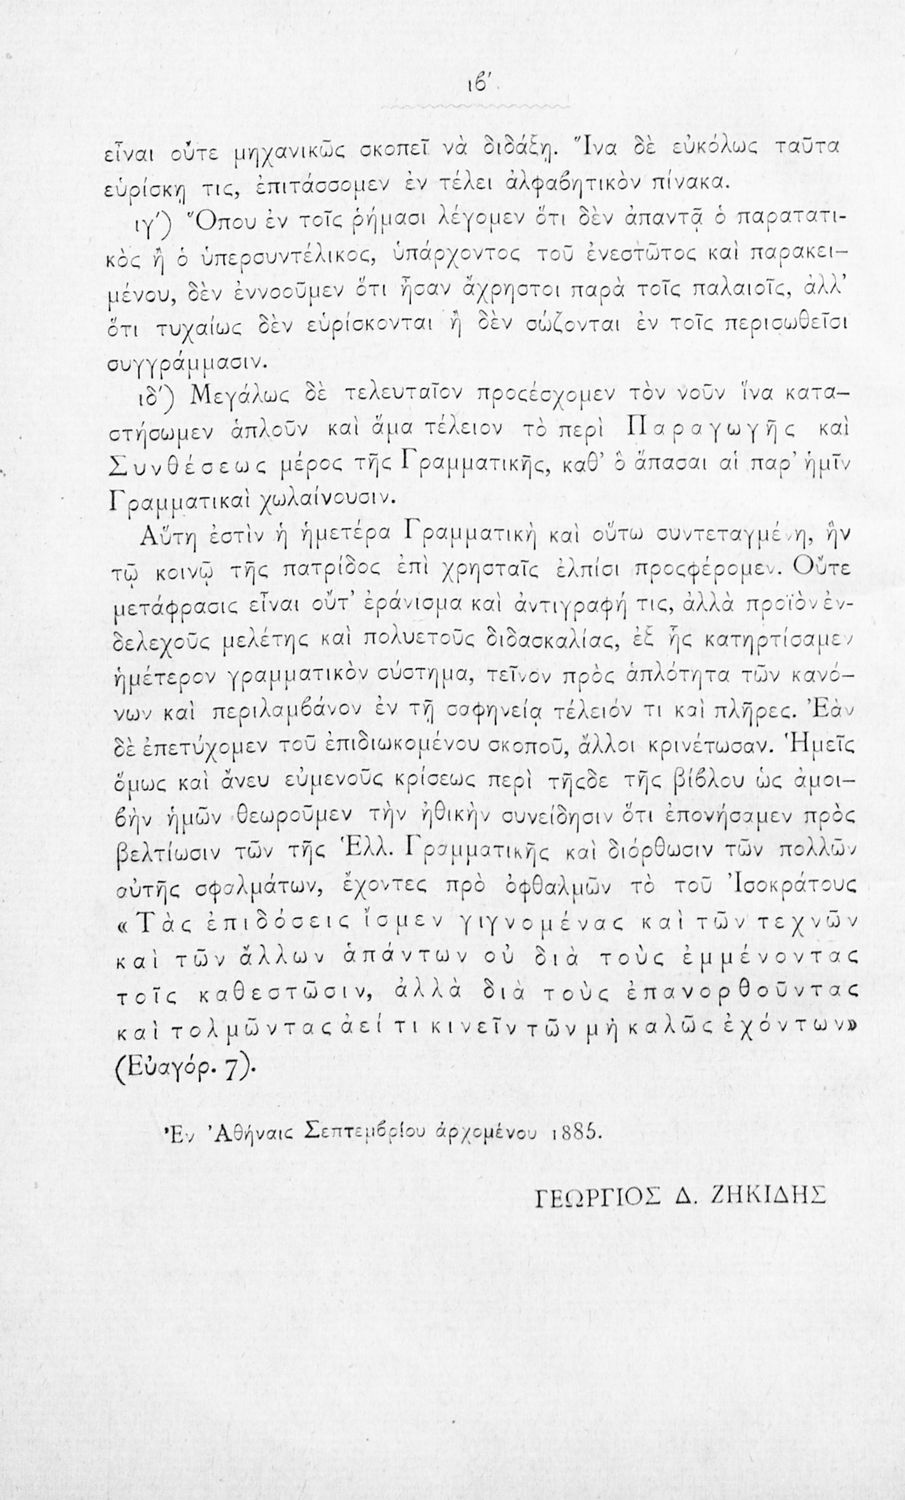 ιϐ′.
εἶναι οὔτε μηχανικῶς σκοπεῖ νὰ διδάξῃ. Ἵνα δὲ εὐκόλως ταῦτα
εὑρίσκῃ τις, ἐπιτάσσομεν ἐν τέλει ἀλφαϐητικὸν πίνακα.
ιγ′) Ὅπου ἐν τοῖς ῥήμασι λέγομεν ὅτι δὲν ἀπαντᾷ ὁ παρατατι-
κὸς ἢ ὁ ὑπερσυντέλικος, ὑπάρχοντος τοῦ ἐνεστῶτος καὶ παρακει-
μένου, δὲν ἐννοοῦμεν ὅτι ἦσαν ἄχρηστοι παρὰ τοῖς παλαιοῖς, ἀλλ’
ὅτι τυχαίως δὲν εὑρίσκονται ἢ δὲν σώζονται ἐν τοῖς περισωθεῖσι
συγγράμμασιν.
ιδ′) Μεγάλως δὲ τελευταῖον προςέσχομεν τὸν νοῦν ἵνα κατα-
στήσωμεν ἁπλοῦν καὶ ἅμα τέλειον τὸ περὶ Παραγωγῆς καὶ
Συνθέσεως μέρος τῆς Γραμματικῆς, καθ’ ὃ ἅπασαι αἱ παρ’ ἡμῖν
Γραμματικαὶ χωλαίνουσιν.
Αὕτη ἐστὶν ἡ ἡμετέρα Γραμματικὴ καὶ οὕτω συντεταγμένη, ἣν
τῷ κοινῷ τῆς πατρίδος ἐπὶ χρησταῖς ἐλπίσι προςφέρομεν. Οὔτε
μετάφρασις εἶναι οὔτ’ ἐράνισμα καὶ ἀντιγραφή τις, ἀλλὰ προϊὸν ἐν-
δελεχοῦς μελέτης καὶ πολυετοῦς διδασκαλίας, ἐξ ἧς κατηρτίσαμεν
ἡμέτερον γραμματικὸν σύστημα, τεῖνον πρὸς ἁπλότητα τῶν κανό-
νων καὶ περιλαμϐάνον ἐν τῇ σαφηνείᾳ τέλειόν τι καὶ πλῆρες. Ἐὰν
δὲ ἐπετύχομεν τοῦ ἐπιδιωκομένου σκοποῦ, ἄλλοι κρινέτωσαν. Ἡμεῖς
ὅμως καὶ ἄνευ εὐμενοῦς κρίσεως περὶ τῆςδε τῆς βίϐλου ὡς ἀμοι-
ϐὴν ἡμῶν θεωροῦμεν τὴν ἠθικὴν συνείδησιν ὅτι ἐπονήσαμεν πρὸς
βελτίωσιν τῶν τῆς Ἑλλ. Γραμματικῆς καὶ διόρθωσιν τῶν πολλῶν
αὐτῆς σφαλμάτων, ἔχοντες πρὸ ὀφθαλμῶν τὸ τοῦ Ἰσοκράτους
«Τὰς ἐπιδόσεις ἴσμεν γιγνομένας καὶ τῶν τεχνῶν
καὶ τῶν ἄλλων ἁπάντων οὐ διὰ τοὺς ἐμμένοντας
τοῖς καθεστῶσιν, ἀλλὰ διὰ τοὺς ἐπανορθοῦντας
καὶ τολμῶντας ἀεί τι κινεῖν τῶν μὴ καλῶς ἐχόντων»
(Εὐαγόρ. 7).
Ἐν Ἀθήναις Σεπτεμϐρίου ἀρχομένου 1885.
ΓΕΩΡΓΙΟΣ Δ. ΖΗΚΙΔΗΣ